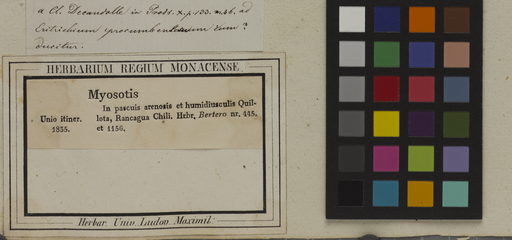 a Cl. Decandolle in Prods. X. p. 133. n. 46. ad
Eritrichium procumbens
ducitur.
HERBARIUM REGIUM MONACENSE.
Myosotis
In pascuis arenosis et humidiusculis Quil-
Unio itiner. lota, Rancagua Chili. Hrbr, Bertero nr. 445.
1835. et 1156.
Herbar. Univ. Ludov. Maximil.